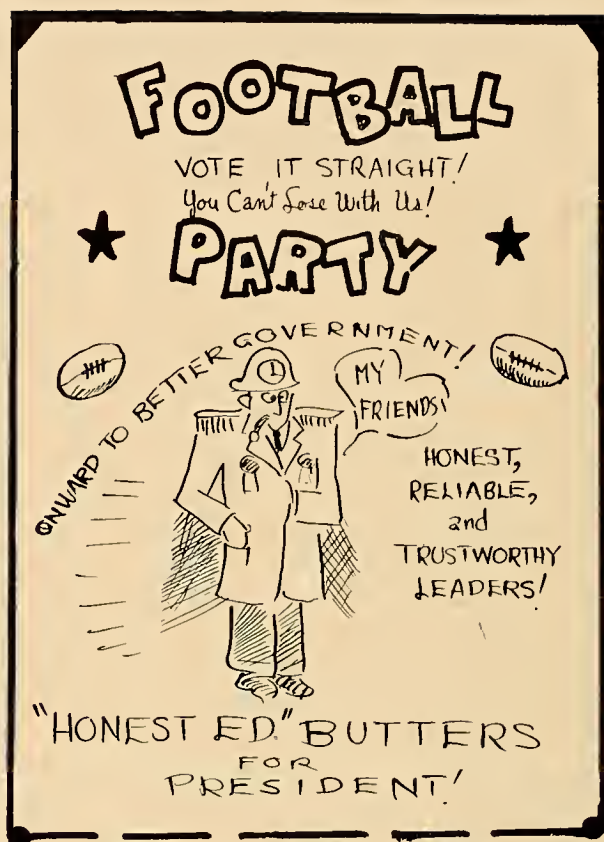 FOOTBALL
VOTE IT STRAIGHT!
You Can't Lose With Us!
PARTY
ONWARD TO BETTER GOVERNMENT!
1
MY
FRIENDS!
HONEST,
RELIABLE,
and
TRUSTWORTHY
LEADERS!
"HONEST ED." BUTTERS
FOR
PRESIDENT!